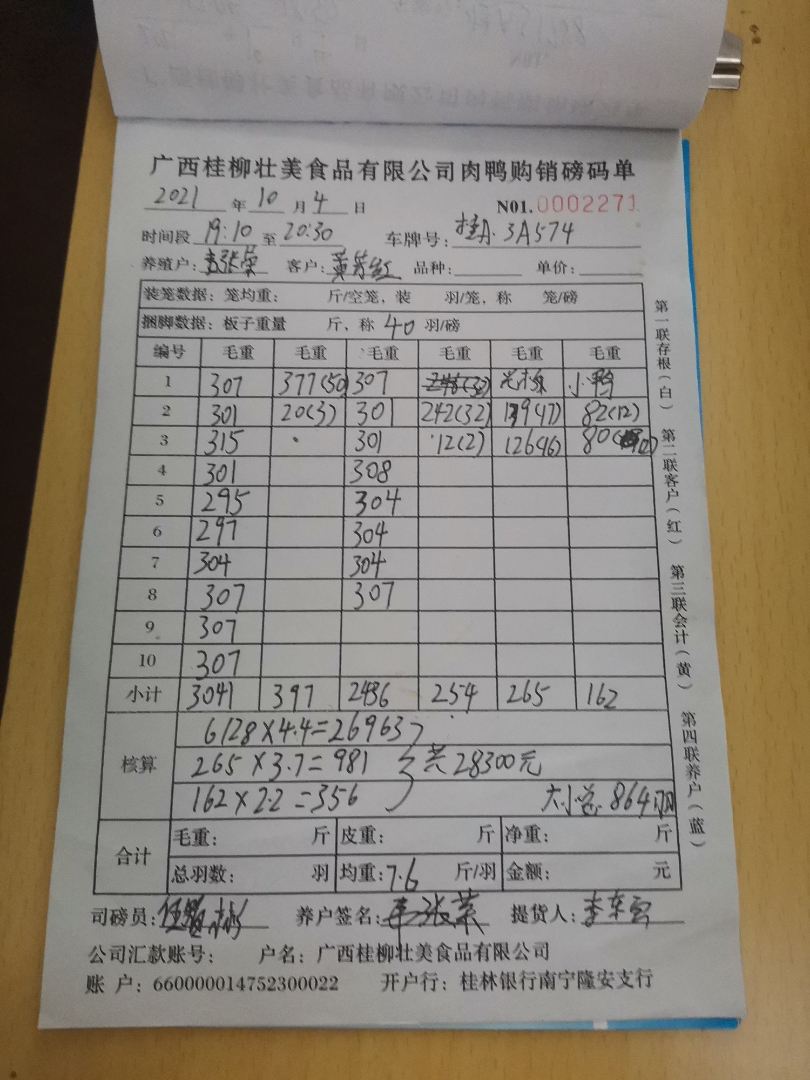 广西桂柳壮美食品有限公司肉鸭购销磅码单
2021 年 10 月 4 日 N01.0002271
时间段 19:10 至 20:30 车牌号: 桂A.3A574
养殖户: 客户: 品种: 单价:
装笼数据: 笼均重: 斤/空笼, 装 羽/笼, 称 笼/磅
捆脚数据: 板子重量 斤, 称 40 羽/磅
编号 毛重 毛重 毛重 毛重 毛重 毛重
1 307 377(50) 307 小鸭
2 301 20(3) 301 242(32) 139(17) 82(12)
3 315 301 12(2) 126(16) 80
4 301 308
5 295 304
6 297 304
7 304 304
8 307 307
9 307
10 307
小计 3041 397 2436 254 265 162
核算
6128×4.4=26963
265×3.7=981 共28300元
162×2.2=356
大小总 864羽
合计
毛重: 斤 皮重: 斤 净重: 斤
总羽数: 羽 均重: 7.6 斤/羽 金额: 元
司磅员: 养户签名: 提货人:
公司汇款账号: 户名: 广西桂柳壮美食品有限公司
账 户: 660000014752300022 开户行: 桂林银行南宁隆安支行
第一联存根(白)
第二联客户(红)
第三联会计(黄)
第四联养户(蓝)